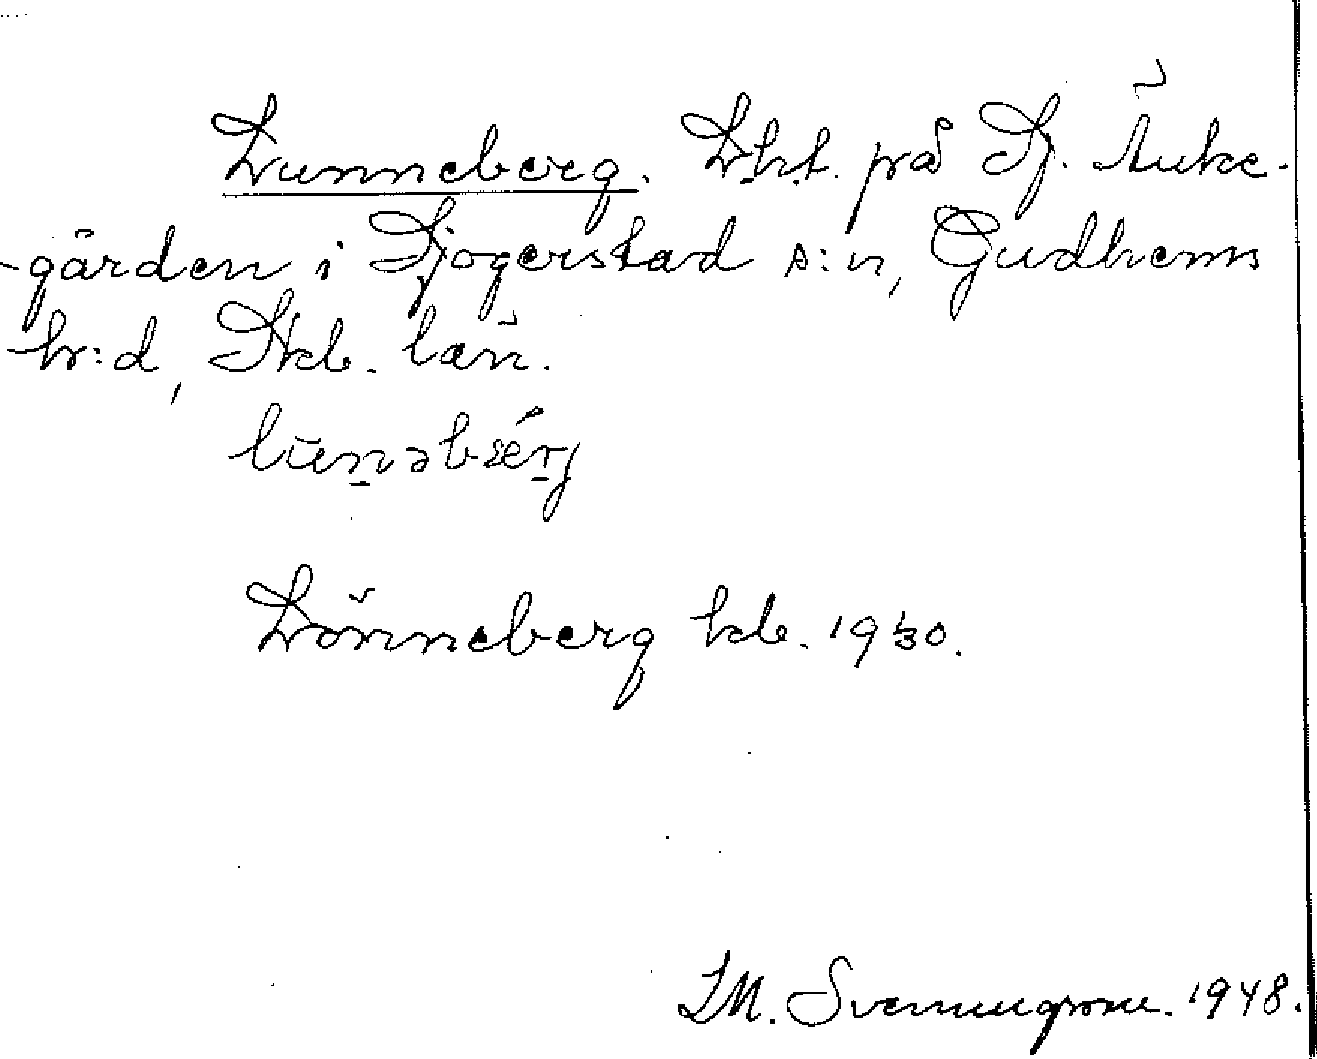 Lunneberg. Lht. på Sj. Änke-
gården i Sjogerstad s:n, Gudhems
h:d, Skb. län.
lunəbærj
Lönneberg kb. 1930.
I.M. Svenungsson. 1948.